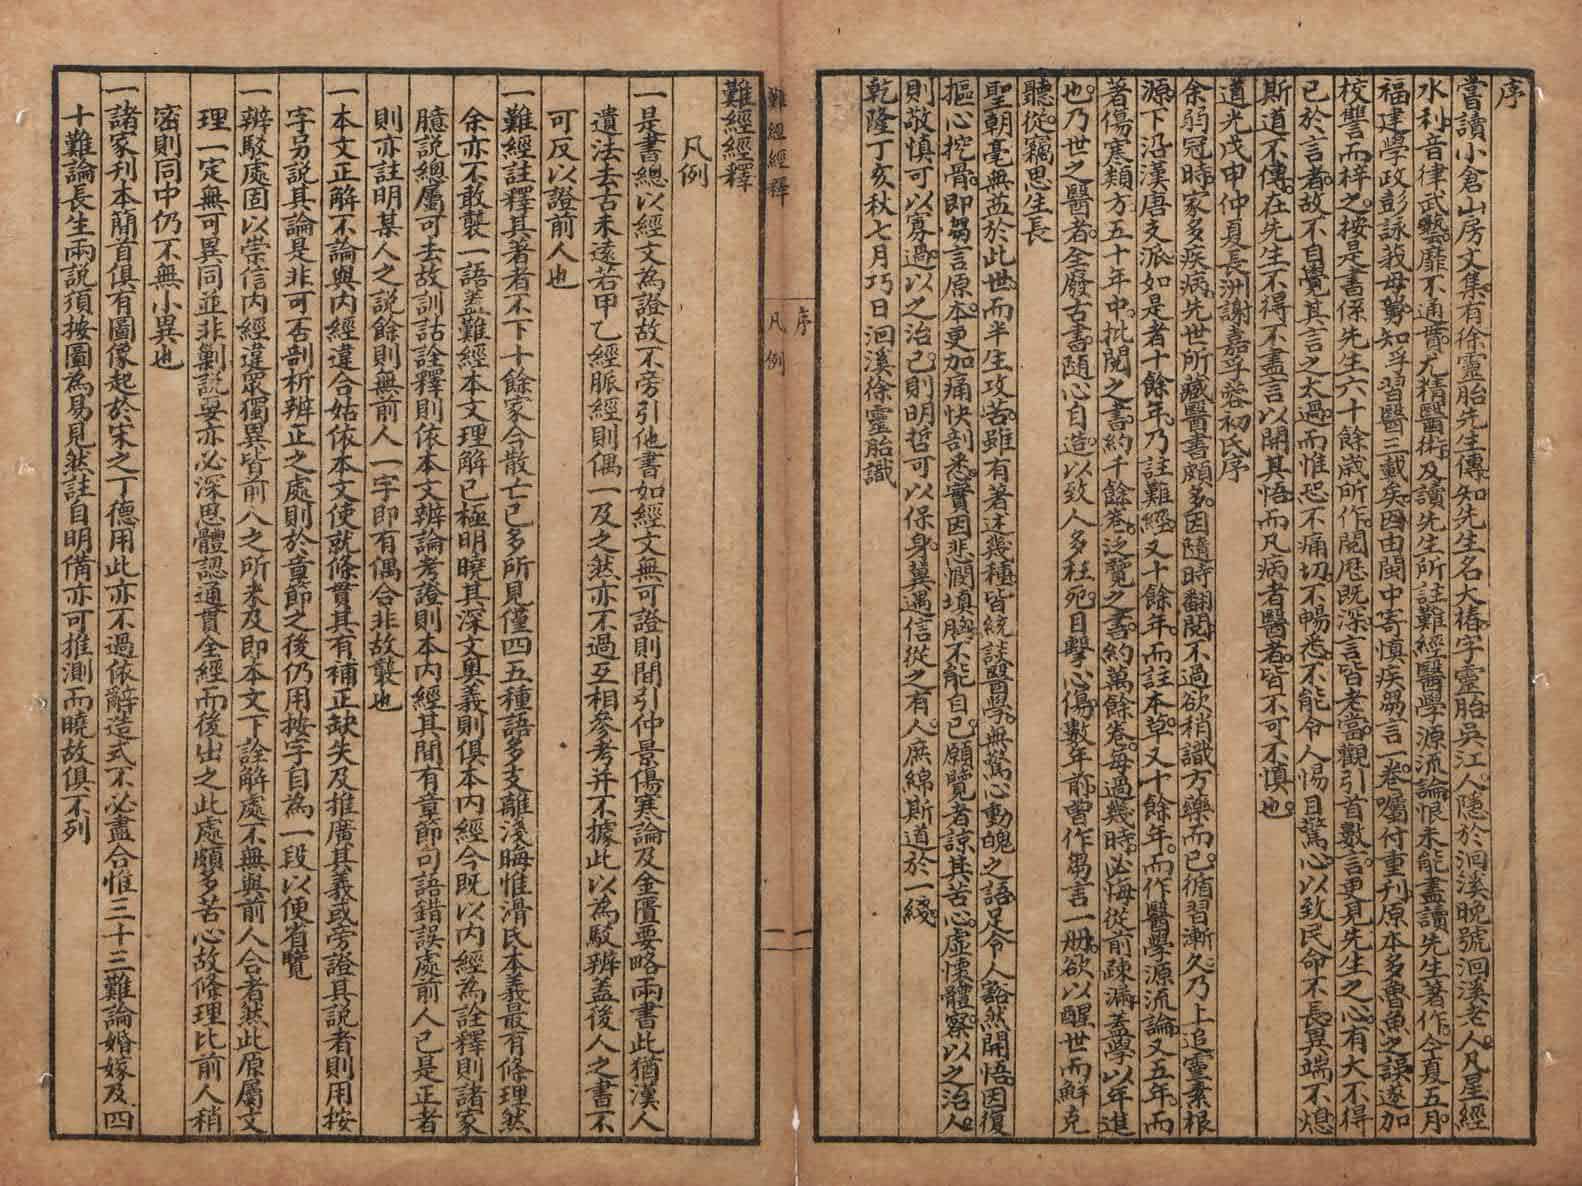 序
嘗讀小倉山房文集有徐靈胎先生傳知先生名大椿字靈胎吳江人隱於洄溪晚號洄溪老人凡星經
水利音律武藝靡不通曉尤精醫術及讀先生所註難經醫學源流論恨未能盡讀先生著作今夏五月
福建學政彭詠莪母舅知孚習醫三載矣因由閩中寄慎疾芻言一卷囑付重刊原本多魯魚之誤遂加
校讐而梓之按是書係先生六十餘歲所作閱歷既深言皆老當觀引首數言更見先生之心有大不得
已於言者故不自覺其言之太過而惟恐不痛切不暢悉不能令人惕目驚心以致民命不長異端不熄
斯道不傳在先生不得不盡言以開其悟而凡病者醫者皆不可不慎也
道光戊申仲夏長洲謝嘉孚蓉初氏序
余弱冠時家多疾病先世所藏醫書頗多因隨時翻閱不過欲稍識方藥而已循習漸久乃上追靈素根
源下沿漢唐支派如是者十餘年乃註難經又十餘年而註本草又十餘年而作醫學源流論又五年而
著傷寒類方五十年中批閱之書約千餘卷泛覽之書約萬餘卷每過幾時必悔從前疎漏蓋學以年進
也乃世之醫者全廢古書隨心自造以致人多枉死目擊心傷數年前曾作芻言一册欲以醒世而鮮克
聽從竊思生長
聖朝毫無益於此世而半生攻苦雖有著述幾種皆統談醫學無驚心動魄之語足令人豁然開悟因復
摳心挖骨即芻言原本更加痛快剖悉實因悲憫填胸不能自已願覽者諒其苦心虛懷體察以之治人
則敬慎可以寡過以之治己則明哲可以保身冀遇信從之有人庶綿斯道於一綫
乾隆丁亥秋七月巧日洄溪徐靈胎識
難經經釋
序
凡例
一
難經經釋
凡例
一是書總以經文為證故不旁引他書如經文無可證則間引仲景傷寒論及金匱要略兩書此猶漢人
遺法去古未遠若甲乙經脈經則偶一及之然亦不過互相參考并不據此以為駁辨蓋後人之書不
可反以證前人也
一難經註釋其著者不下十餘家今散亡已多所見僅四五種語多支離淺晦惟滑氏本義最有條理然
余亦不敢襲一語蓋難經本文理解已極明曉其深文奧義則俱本內經今既以內經為詮釋則諸家
臆說總屬可去故訓詁詮釋則依本文辨論考證則本內經其間有章節句語錯誤處前人已是正者
則亦註明某人之說餘則無前人一字即有偶合非故襲也
一本文正解不論與內經違合姑依本文使就條貫其有補正缺失及推廣其義或旁證其說者則用按
字另說其論是非可否剖析辨正之處則於章節之後仍用按字自為一段以便省覽
一辨駁處固以崇信內經違衆獨異皆前人之所未及即本文下詮解處不無與前人合者然此原屬文
理一定無可異同並非剿説要亦必深思體認通貫全經而後出之此處頗多苦心故條理比前人稍
密則同中仍不無小異也
一諸家刋本簡首俱有圖像起於宋之丁德用此亦不過依辭造式不必盡合惟三十三難論婚嫁及四
十難論長生兩説須按圖為易見然註自明備亦可推測而曉故俱不列